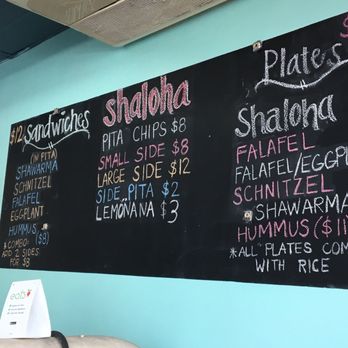 $12 Sandwiches
(IN PITA)
SHAWARMA
SCHNITZEL
FALAFEL
EGGPLANT
HUMMUS ($9)
* COMBO:
ADD 2 SIDES
FOR $8
shaloha
PITA CHIPS $8
SMALL SIDE $8
LARGE SIDE $12
SIDE PITA $2
LEMONANA $3
Plates
Shaloha
FALAFEL
FALAFEL/EGGPL
SCHNITZEL
SHAWARMA
HUMMUS ($11
* ALL PLATES COM
WITH RICE
eats